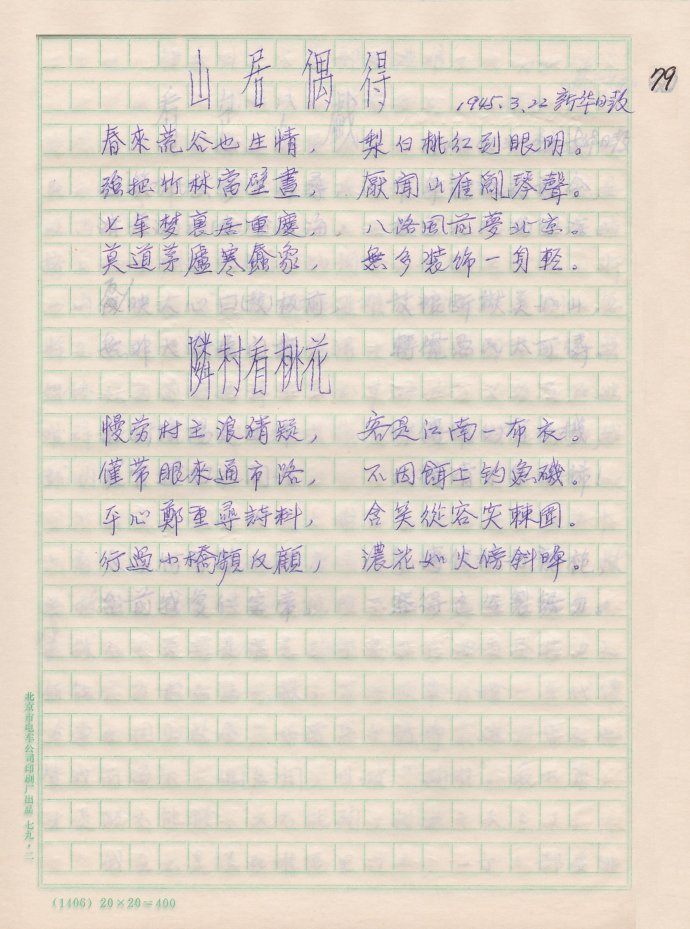 79
山居偶得
1945.3.22 新华日報
春來荒谷也生情，梨白桃红到眼明。
強把竹林當壁畫，厭聞山雀亂琴聲。
七年梦裏居重慶，八路風前夢北京。
莫道茅廬寒傖象，無多装饰一身輕。
隣村看桃花
慢劳村主浪猜疑，客是江南一布衣。
僅带眼來通市路，不因餌上钓魚磯。
平心鄭重尋詩料，含笑從容突棘圍。
行過小橋頻反顧，濃花如火傍斜暉。
北京市电车公司印刷厂出品 七九·二
(1406) 20×20=400